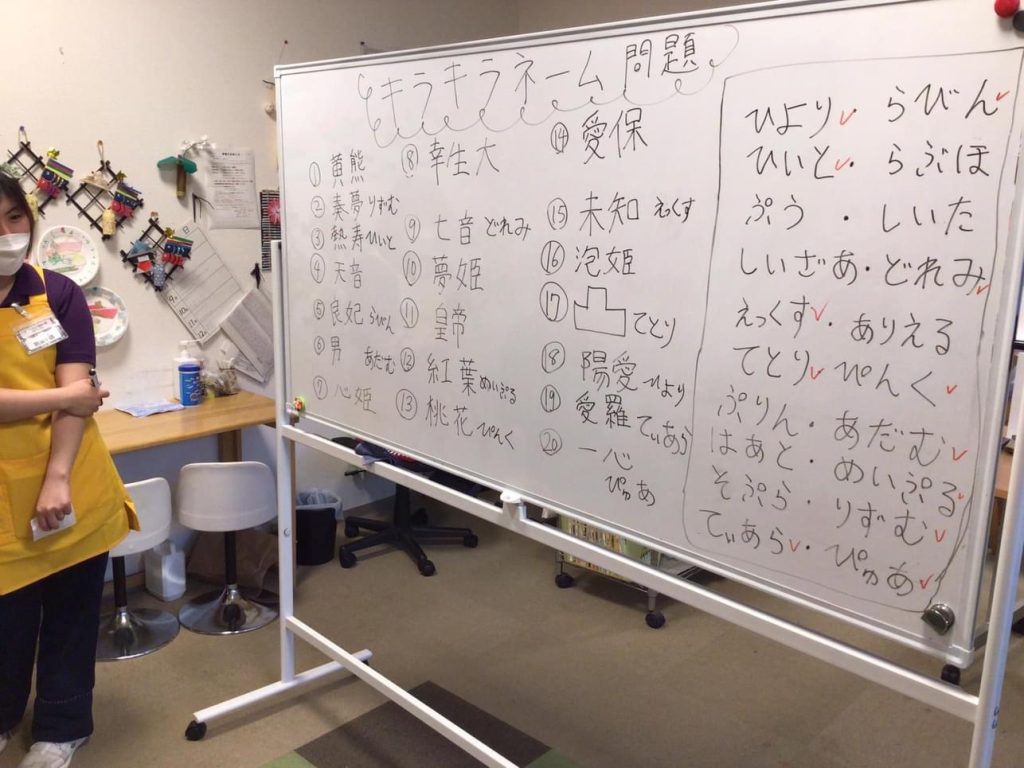 キラキラネーム 問題
① 黄熊
② 奏夢 りずむ
③ 熱寿 ひいと
④ 天音
⑤ 良妃 らびん
⑥ 男 あだむ
⑦ 心姫
⑧ 幸生大
⑨ 七音 どれみ
⑩ 夢姫
⑪ 皇帝
⑫ 紅葉 めいぷる
⑬ 桃花 ぴんく
⑭ 愛保
⑮ 未知 えっくす
⑯ 泡姫
⑰ 凸 てとり
⑱ 陽愛 ひより
⑲ 愛羅 てぃあら
⑳ 一心
ぴゅあ
ひより・らびん
ひいと・らぶほ
ぷう・しいた
しいざあ・どれみ
えっくす・ありえる
てとり・ぴんく
ぷりん・あだむ
はあと・めいぷる
そぷら・りずむ
てぃあら・ぴゅあ